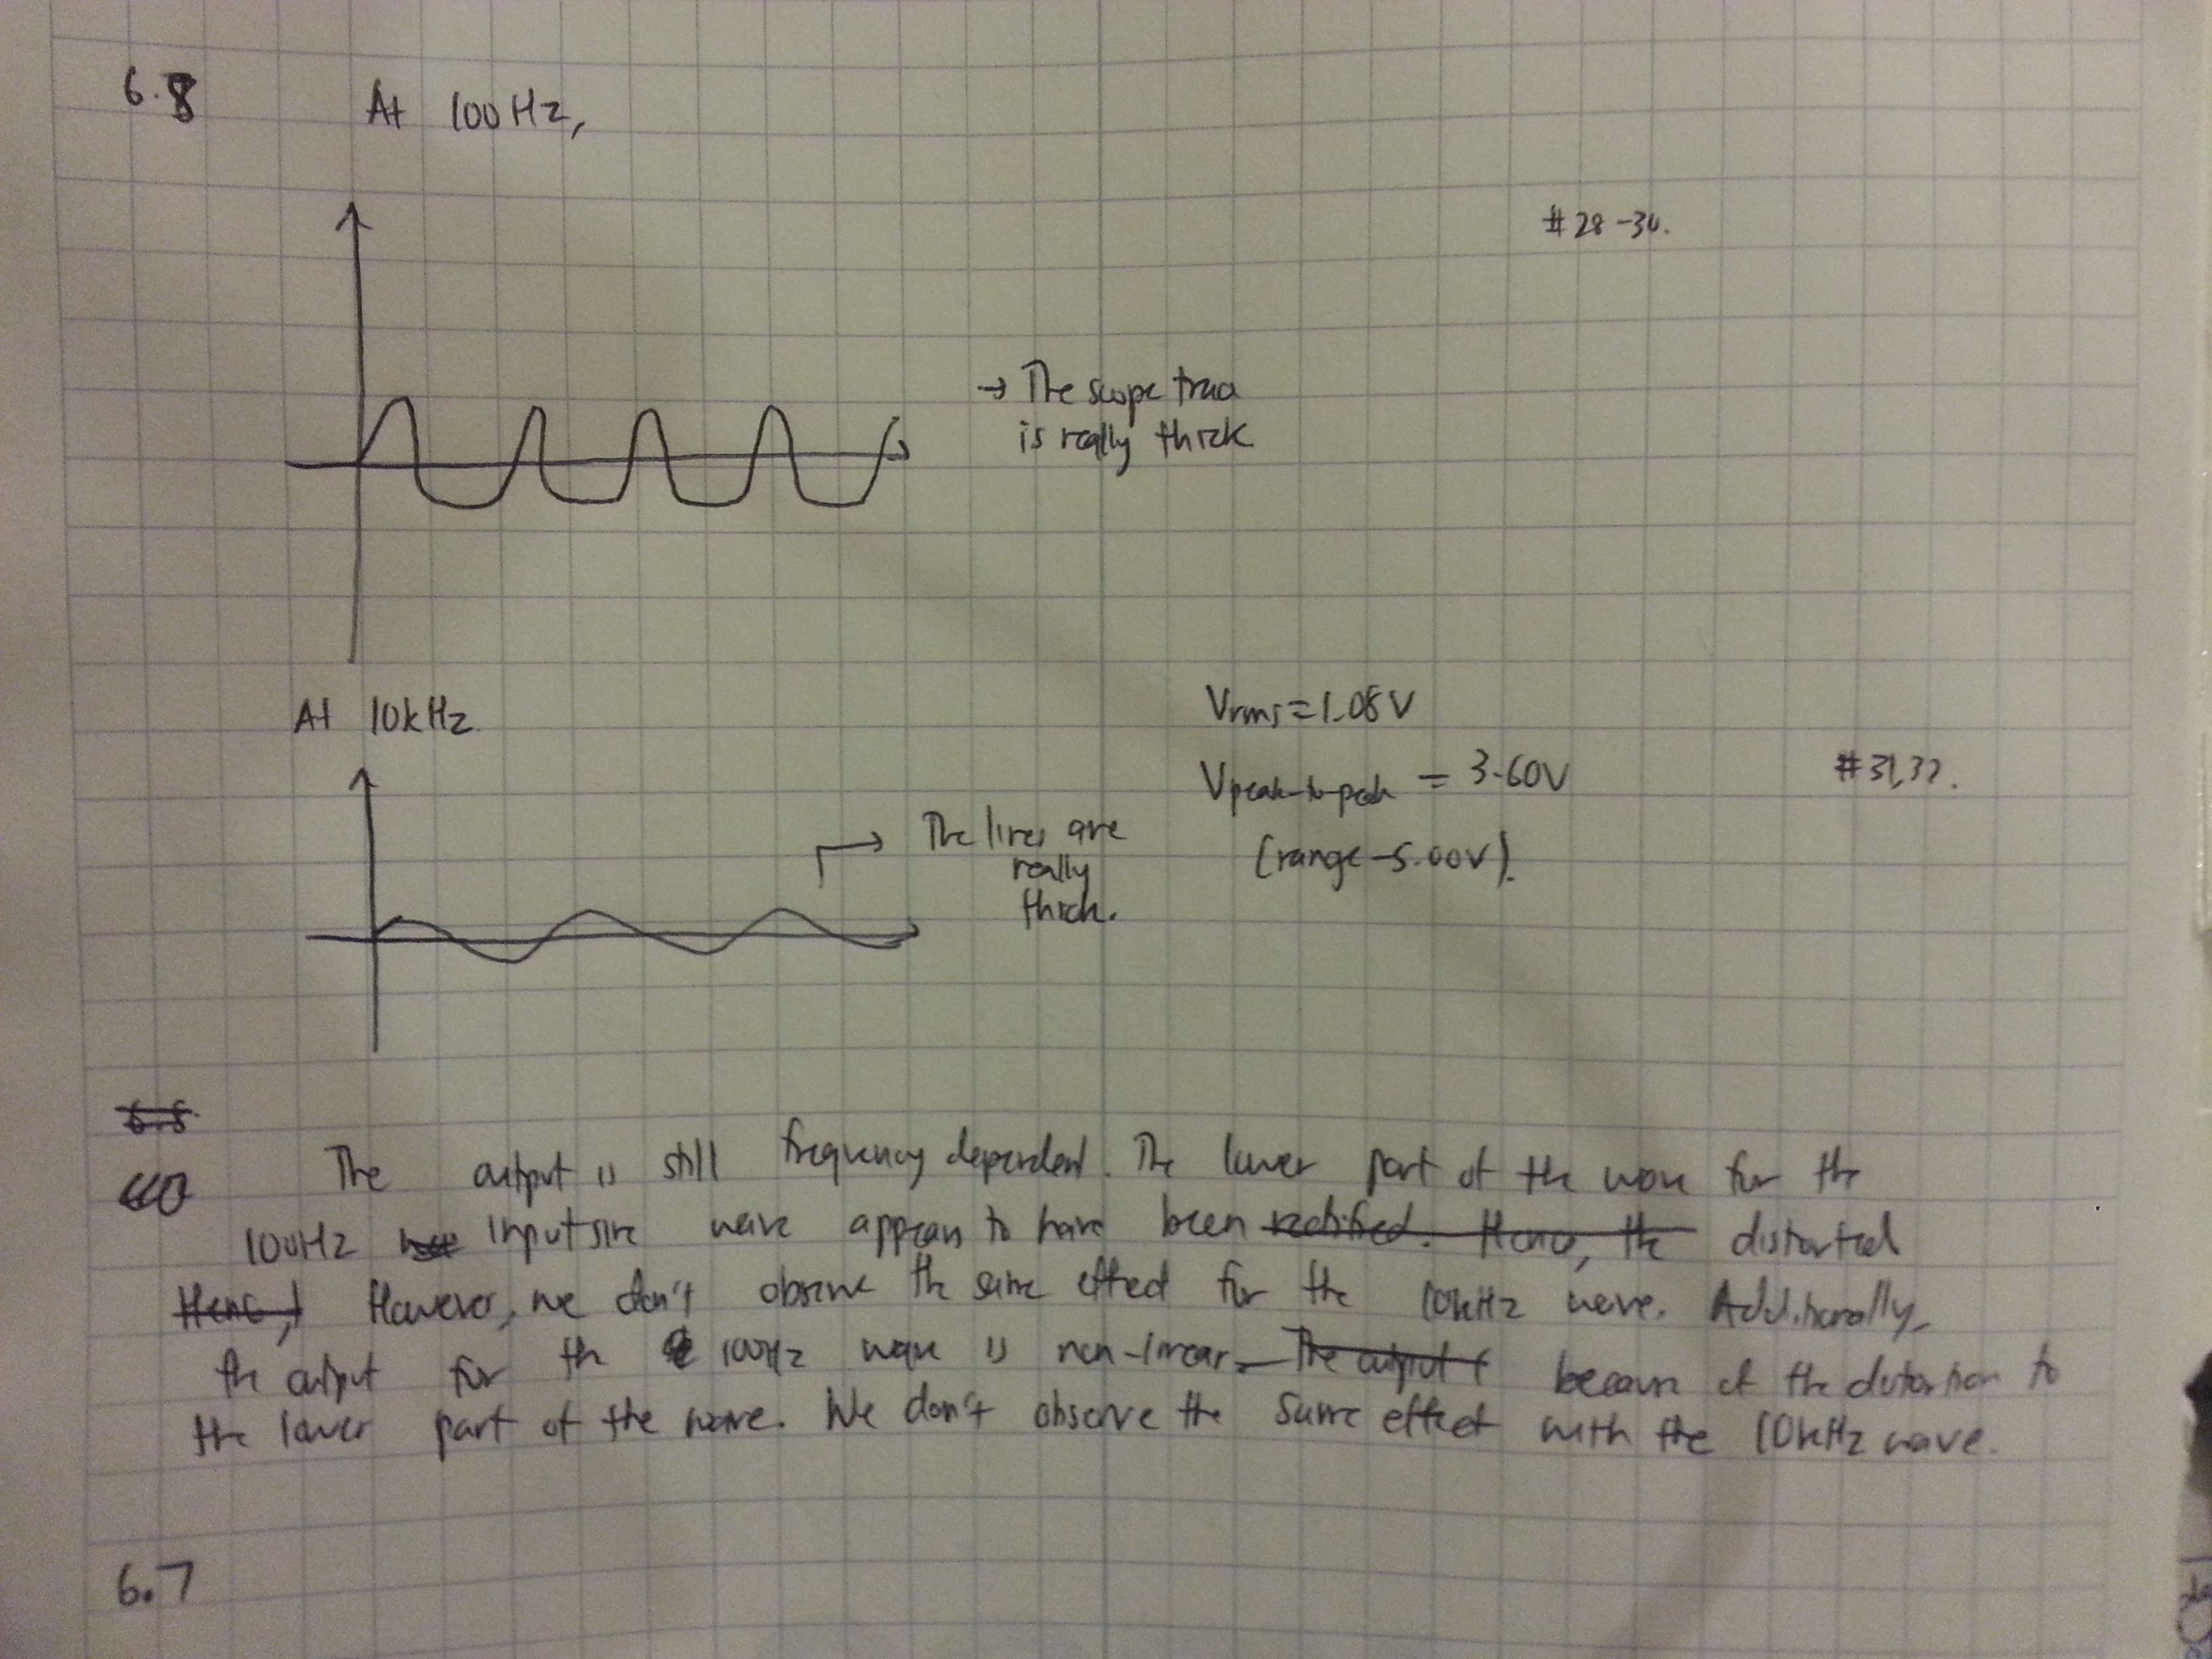 6.8 At 100Hz,
#28-30.
→ The scope trace
is really thick
At 10kHz.
Vrms=1.08V
Vpeak-to-peak = 3.60V
(range-5.00V).
#31,32.
The lines are
really
thick.
6.8
The output is still frequency dependent. The lower part of the wave for the
100Hz input sine wave appears to have been rectified. Hence, the distorted
Hence, However, we don't observe the same effect for the 10kHz wave. Additionally,
the output for the 100Hz wave is non-linear. The output because of the distortion to
the lower part of the wave. We don't observe the same effect with the 10kHz wave.
6.7